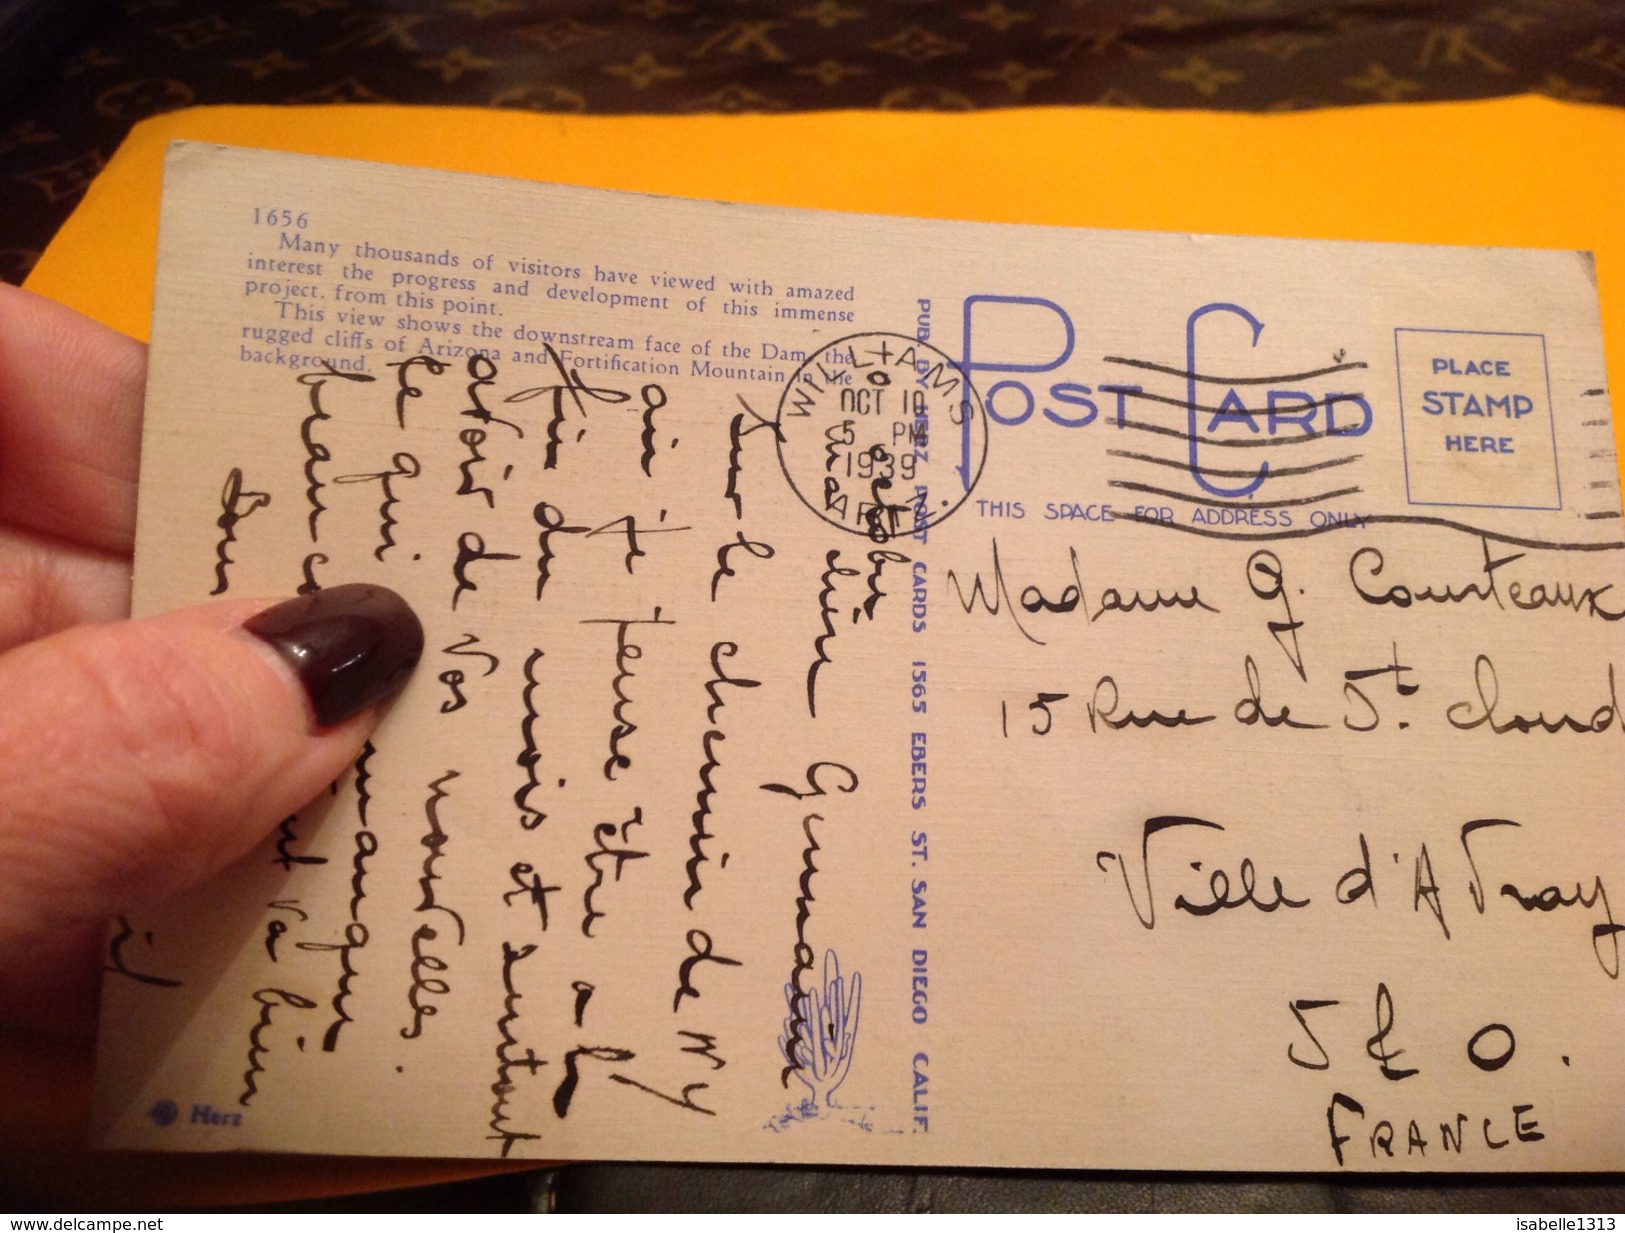 1656
Many thousands of visitors have viewed with amazed
interest the progress and development of this immense
project, from this point.
This view shows the downstream face of the Dam, the
rugged cliffs of Arizona and Fortification Mountain in the
background.
PUB. BY HERZ POST CARDS 1565 EBERS ST. SAN DIEGO CALIF.
POST CARD
THIS SPACE FOR ADDRESS ONLY
PLACE
STAMP
HERE
WILLIAMS
OCT 10
5 PM
1939
ARIZ.
10 octobre
Ma chère Germaine
Sur le chemin de N Y
où je pense être a la
fin du mois et surtout
avoir de vos nouvelles.
ce qui manque
beaucoup
Tout va bien
Herz
Madame G. Courteaux
15 Rue de St. Cloud
Ville d'Avray
S & O.
FRANCE
www.delcampe.net
isabelle1313